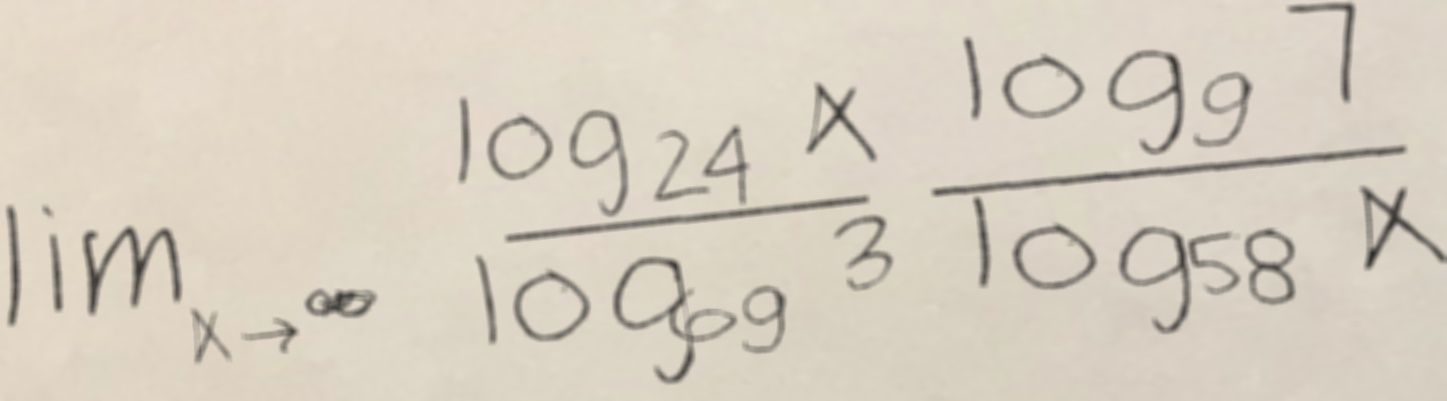 lim_{x→∞} \frac{log_{24} x}{log_{69} 3} \frac{log_9 7}{log_{58} x}